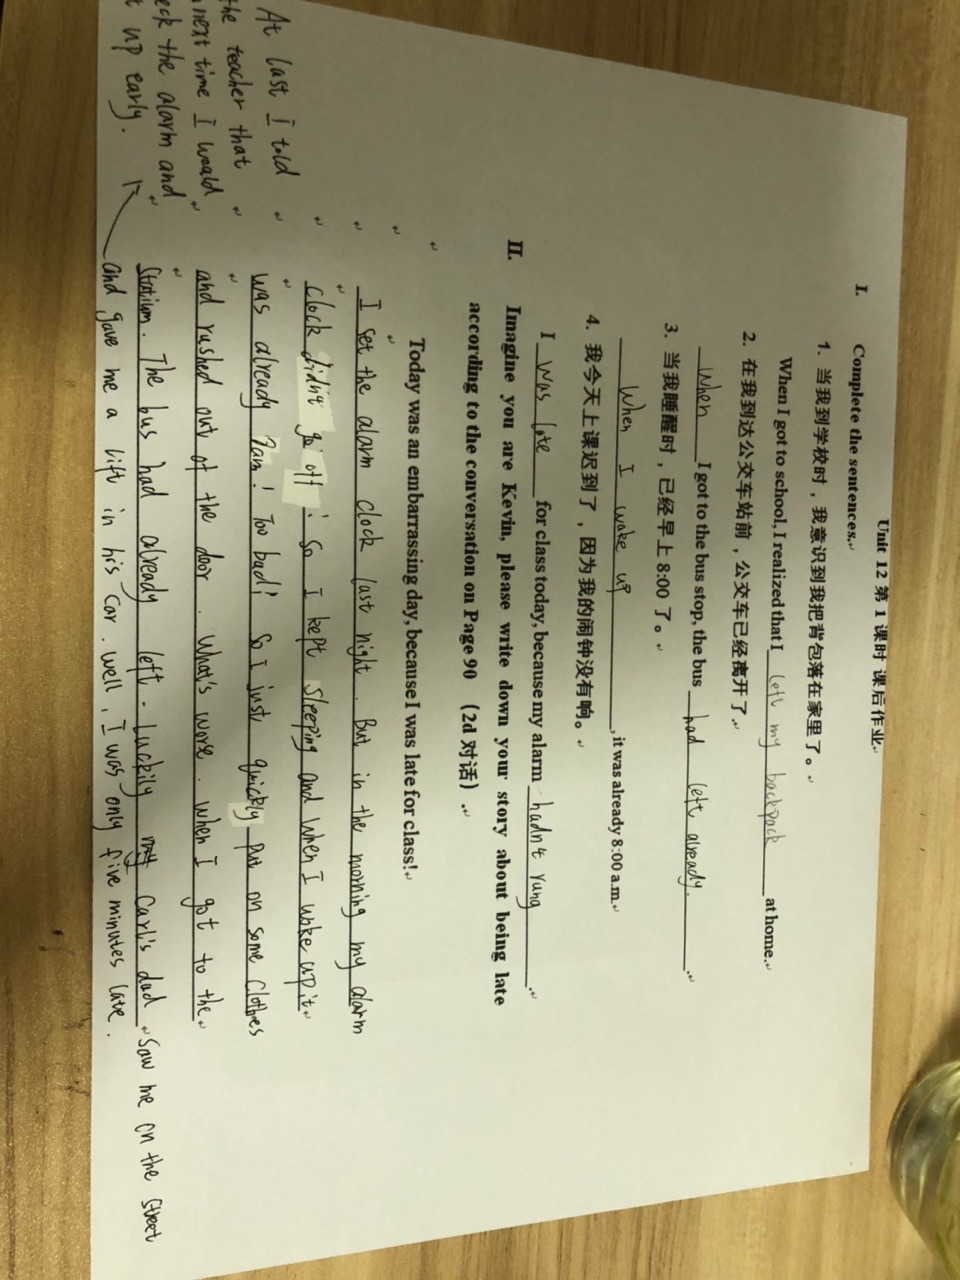 Unit 12 第 1 课时 课后作业
I. Complete the sentences.
1. 当我到学校时，我意识到我把背包落在家里了。
When I got to school, I realized that I left my backpack at home.
2. 在我到达公交车站前，公交车已经离开了.
When I got to the bus stop, the bus had left already.
3. 当我睡醒时，已经早上 8:00 了。
When I wake up, it was already 8:00 a.m.
4. 我今天上课迟到了，因为我的闹钟没有响。
I was late for class today, because my alarm hadn't rung.
II. Imagine you are Kevin, please write down your story about being late
according to the conversation on Page 90 （2d 对话）.
Today was an embarrassing day, because I was late for class!
I set the alarm clock last night. But in the morning my alarm
clock didn't go off! So I kept sleeping and when I woke up it
was already 7am! Too bad! So I just quickly put on some clothes
and rushed out of the door. What's worse. when I got to the
The bus had already left. Luckily Carl's dad saw me on the street
and gave me a lift in his car. well, I was only five minutes late.
At last I told
the teacher that
next time I would
the alarm and
up early.